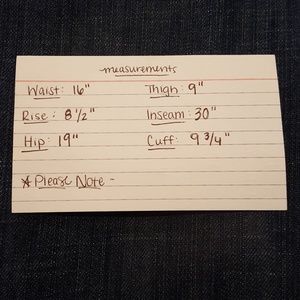 measurements
Waist: 16" Thigh: 9"
Rise: 8 1/2" Inseam: 30"
Hip: 19" Cuff: 9 3/4"
* Please Note -